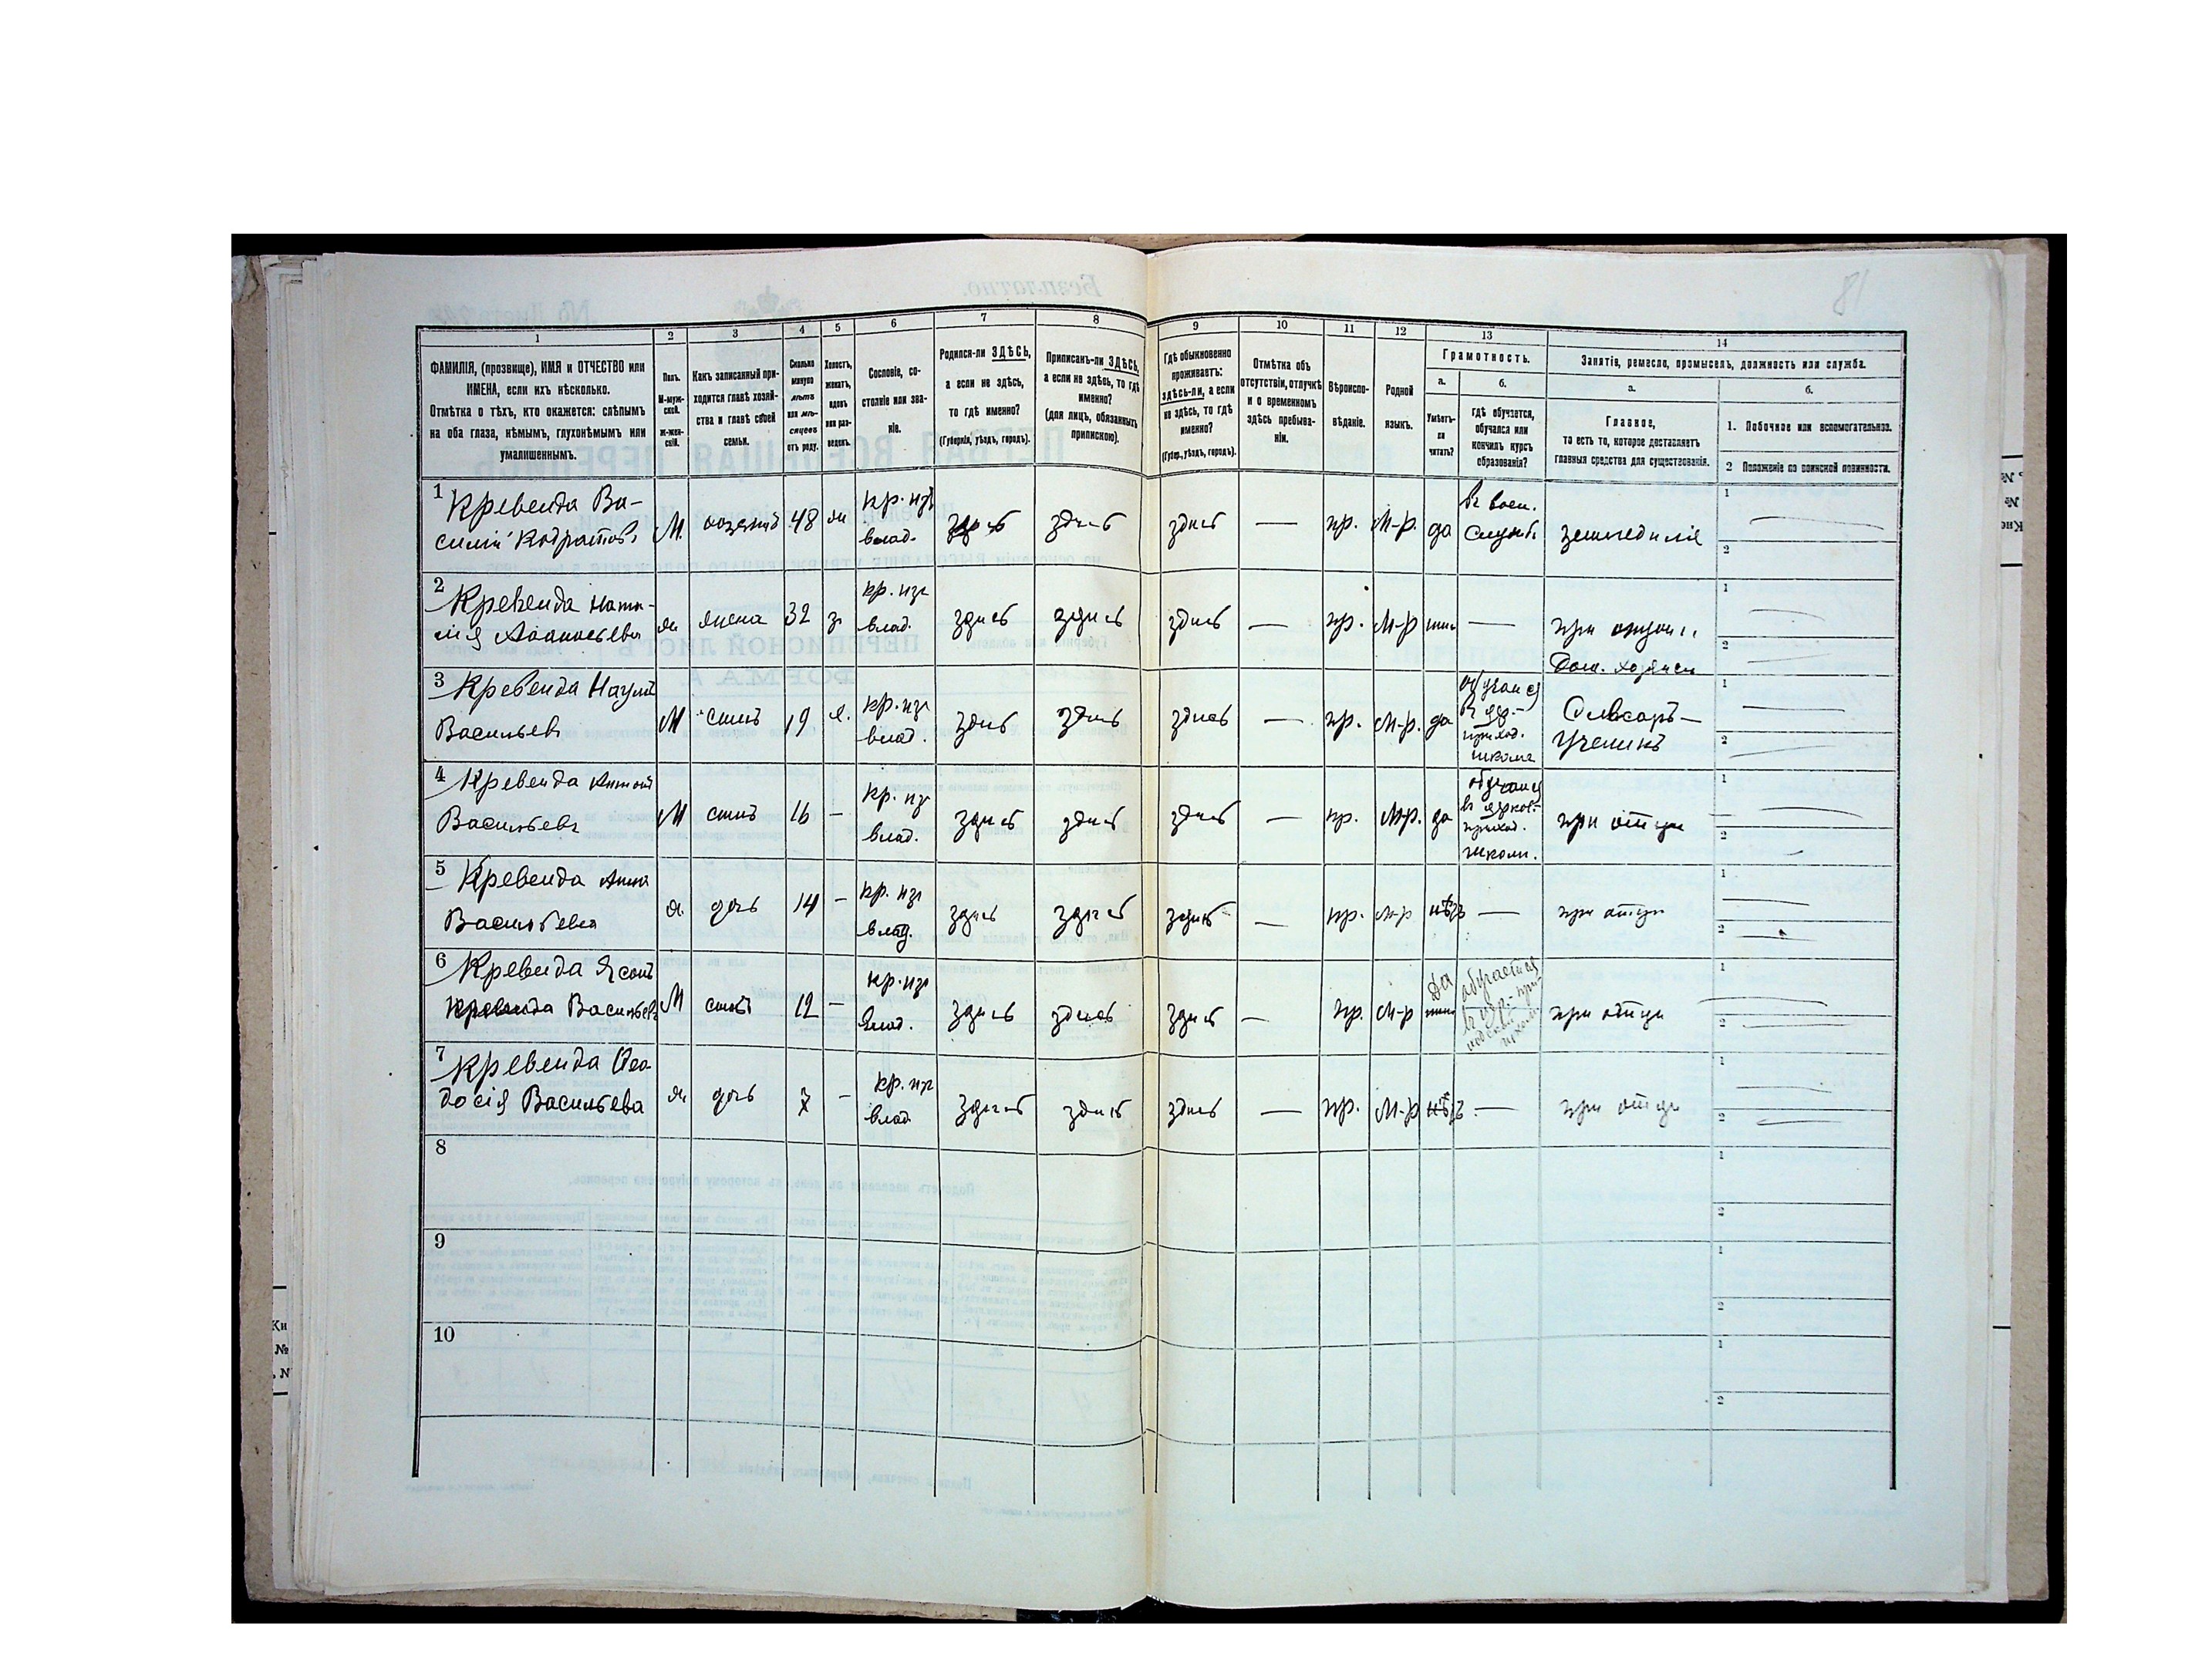 81
1 2 3 4 5 6 7 8 9 10 11 12 13 14
ФАМИЛІЯ, (прозвище), ИМЯ и ОТЧЕСТВО или
ИМЕНА, если ихъ нѣсколько.
Отмѣтка о тѣхъ, кто окажется: слѣпымъ
на оба глаза, нѣмымъ, глухонѣмымъ или
умалишеннымъ.
Полъ.
М-муж-
ской.
ж-жен-
скій.
Какъ записанный при-
ходится главѣ хозяй-
ства и главѣ своей
семьи.
Сколько
минуло
лѣтъ
или мѣ-
сяцевъ
отъ роду.
Холостъ,
женатъ,
вдовъ
или раз-
веденъ.
Сословіе, со-
стояніе или зва-
ніе.
Родился-ли ЗДѢСЬ,
а если не здѣсь,
то гдѣ именно?
(Губернія, уѣздъ, городъ).
Приписанъ-ли ЗДѢСЬ,
а если не здѣсь, то гдѣ
именно?
(для лицъ, обязанныхъ
припискою).
Гдѣ обыкновенно
проживаетъ:
здѣсь-ли, а если
не здѣсь, то гдѣ
именно?
(Губер., уѣздъ, городъ).
Отмѣтка объ
отсутствіи, отлучкѣ
и о временномъ
здѣсь пребыва-
ніи.
Вѣроиспо-
вѣданіе.
Родной
языкъ.
Грамотность.
а.
Умѣетъ-
ли
читать?
б.
гдѣ обучается,
обучался или
кончилъ курсъ
образованія?
Занятія, ремесло, промыселъ, должность или служба.
а.
Главное,
то есть то, которое доставляетъ
главныя средства для существованія.
б.
1. Побочное или вспомогательное.
2 Положеніе по воинской повинности.
1 Кревенда Ва-
силій Кодратовъ М. хозяинъ 48 ж кр. изъ
влад. здѣсь здѣсь здѣсь — пр. М-р. да
въ воен.
службѣ земледѣліе 1
2
2 Кревенда Ната-
лія ж жена 32 з кр. изъ
влад. здѣсь здѣсь здѣсь — пр. М-р —
при
Дом. 1
2
3 Кревенда Наумъ
Васильевъ М сынъ 19 х. кр. изъ
влад. здѣсь здѣсь здѣсь — пр. М-р. да
обучался
въ цер.-
приход.
школѣ
Слесарь—
Ученикъ 1
2
4 Кревенда Антонъ
Васильевъ М сынъ 16 — кр. изъ
влад. здѣсь здѣсь здѣсь — пр. М-р. да
обучался
въ церков.-
приход.
школѣ. при отцѣ 1
2
5 Кревенда Анна
Васильева ж дочь 14 — кр. изъ
влад. здѣсь здѣсь здѣсь — пр. М-р нѣтъ — при отцѣ 1
2
6 Кревенда Ясонъ
Кревенда Васильевъ М сынъ 12 — кр. изъ
влад. здѣсь здѣсь здѣсь — пр. М-р да
обучается
при отцѣ 1
2
7 Кревенда Ѳео-
досія Васильева ж дочь 7 — кр. изъ
влад здѣсь здѣсь здѣсь — пр. М-р нѣтъ — при отцѣ 1
2
8 1
2
9 1
2
10 1
2